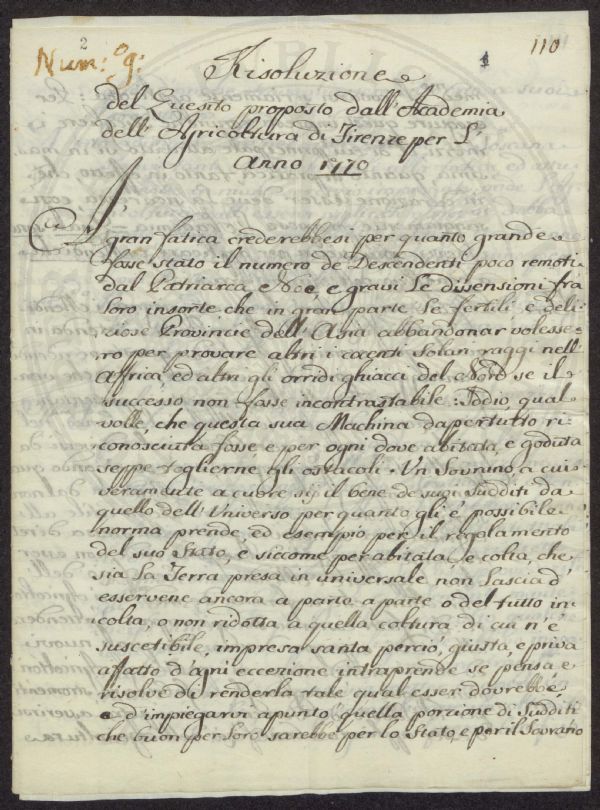 2
Num: 9:
110
Risoluzione
del Quesito proposto dall'Academia
dell'Agricoltura di Firenze per L'
anno 1770
A gran fatica crederebbesi per quanto grande
fosse stato il numero de Descendenti poco remoti
dal Patriarca Noè, e gravi le dissensioni fra
loro insorte che in gran parte le fertili e deli
ziose Provincie dell'Asia abbandonar volesse
ro per provare altri i cocenti Solari raggi nell'
Affrica, ed altri gli orridi ghiacci del Nord se il
successo non fosse incontrastabile: Iddio, qual
volle, che questa sua Machina dapertutto ri
conosciuta fosse e per ogni dove abitata, e goduta
seppe toglierne gli ostacoli. Un Sovrano, a cui
veramente a cuore sij il bene de suoi Sudditi da
quello dell'Universo per quanto gli è possibile
norma prende, ed esempio per il regolamento
del suo Stato, e siccome per abitata, e colta, che
sia la Terra presa in universale non lascia d'
esservene ancora a parte a parte o del tutto in
colta, o non ridotta a quella coltura di cui n'è
suscetibile, impresa santa perciò, giusta, e priva
affatto d'ogni eccezione intraprende se pensa e
risolve di renderla tale qual esser dovrebbe
e d'impiegarvi apunto quella porzione di Sudditi
che buon per loro sarebbe per lo Stato, e per il Sovrano